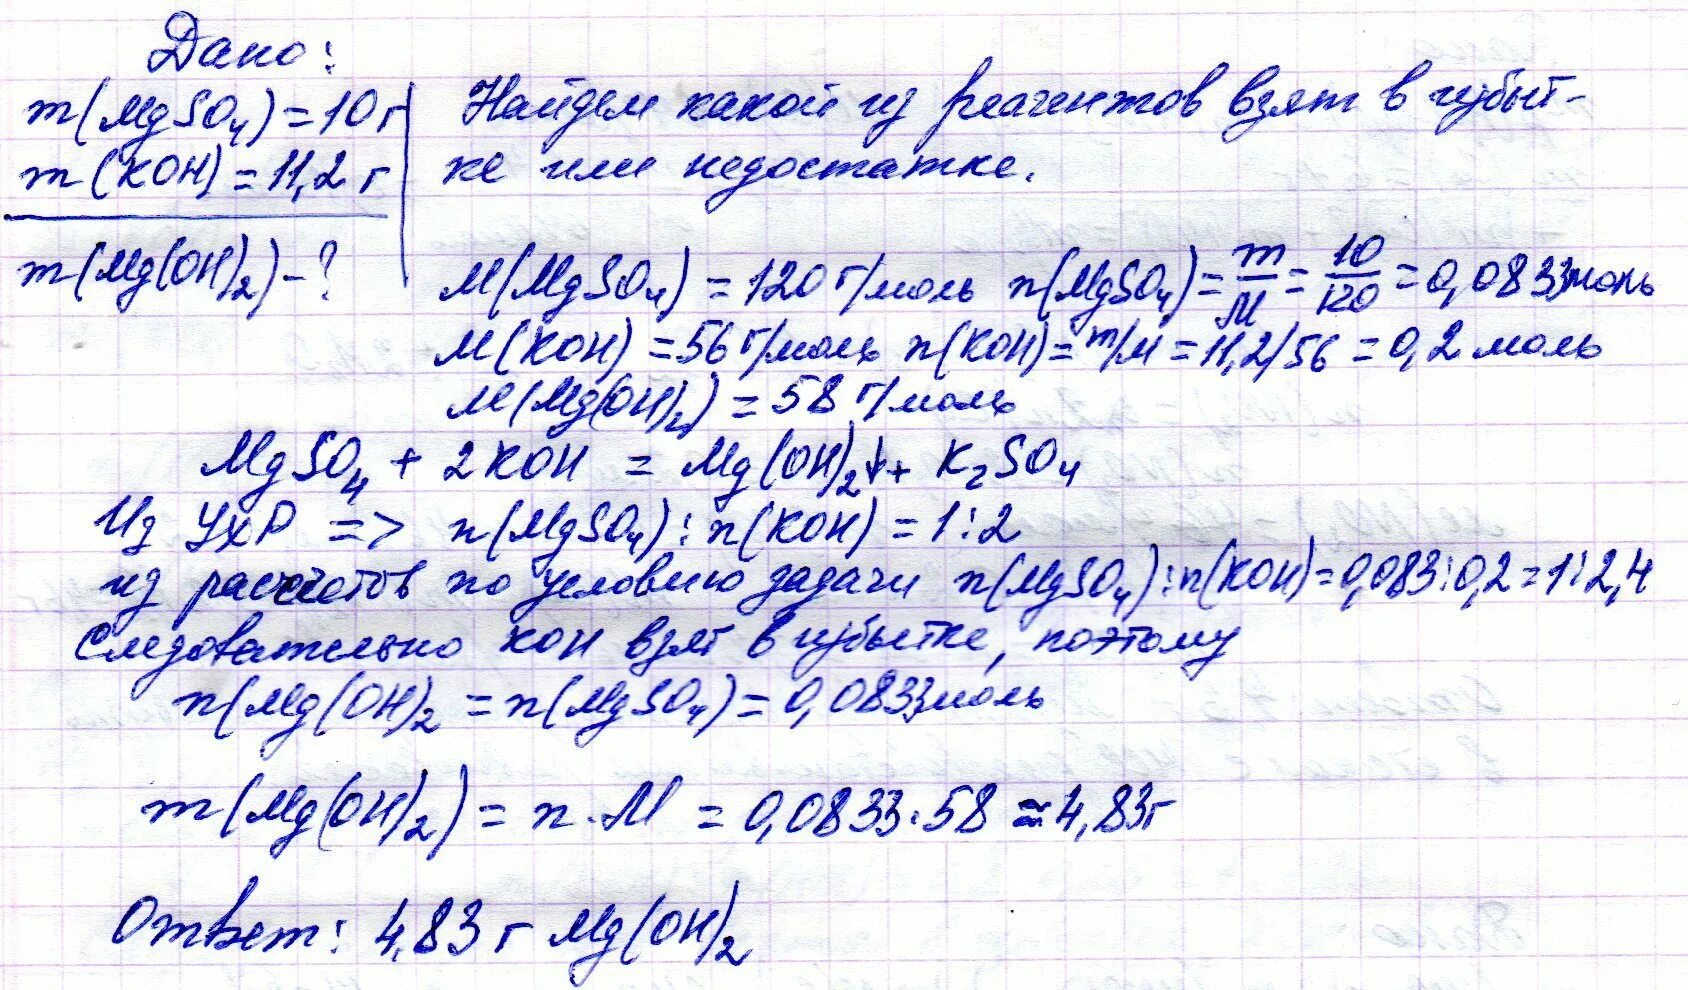 Дано:
m(MgSO₄) = 10 г
m(KOH) = 11,2 г
m(Mg(OH)₂) - ?
Найдем какой из реагентов взят в избыт-
ке или недостатке.
M(MgSO₄) = 120 г/моль n(MgSO₄) = m/M = 10/120 = 0,0833 моль
M(KOH) = 56 г/моль n(KOH) = m/M = 11,2/56 = 0,2 моль
M(Mg(OH)₂) = 58 г/моль
MgSO₄ + 2KOH = Mg(OH)₂↓ + K₂SO₄
Из УХР => n(MgSO₄) : n(KOH) = 1:2
из расчетов по условию задачи n(MgSO₄) : n(KOH) = 0,083:0,2 = 1:2,4
Следовательно KOH взят в избытке, поэтому
n(Mg(OH)₂ = n(MgSO₄) = 0,0833 моль
m(Mg(OH)₂) = n · M = 0,0833·58 ≈ 4,83 г
Ответ: 4,83 г Mg(OH)₂